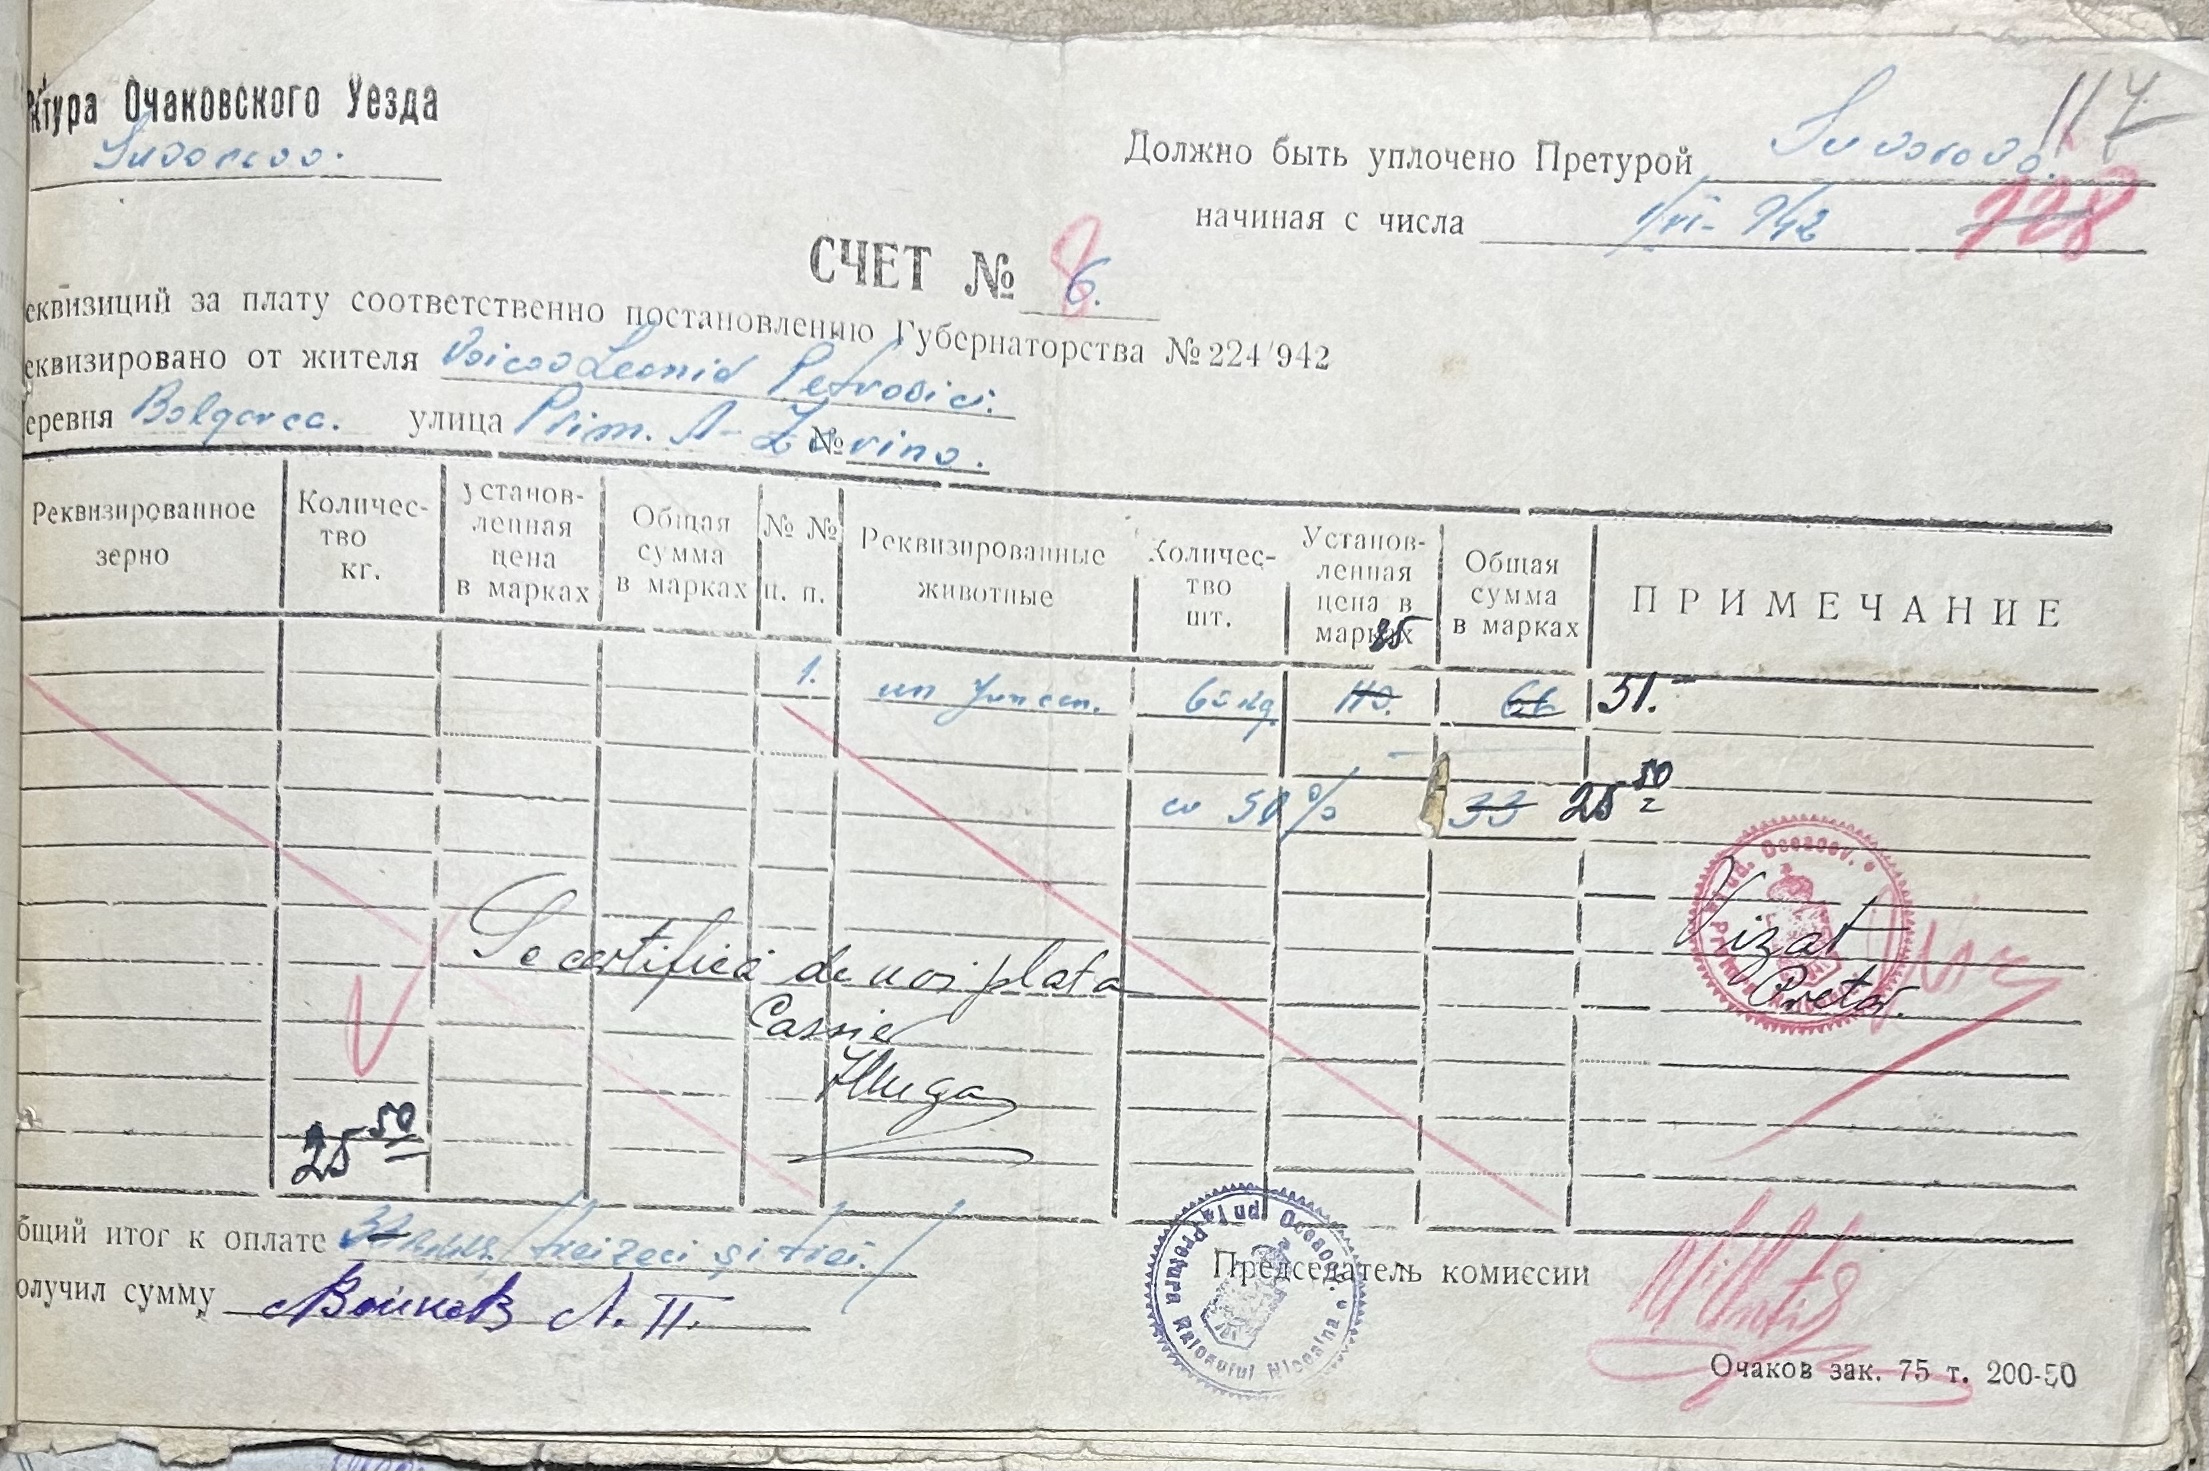 ктура Очаковского Уезда
Suvorovo.
117
Должно быть уплочено Претурой Suvorovo.
начиная с числа 1/VI- 942 128
СЧЕТ № 6.
еквизиций за плату соответственно постановлению Губернаторства № 224/942
еквизировано от жителя Voicov Leonid Petrovici.
еревня Bolgarca. улица Prim. №
Реквизированное зерно
Количес-тво кг.
установ-ленная цена в марках
Общая сумма в марках
№ № п. п.
Реквизированные животные
Количес-тво шт.
Установ-ленная цена в марках
Общая сумма в марках
ПРИМЕЧАНИЕ
85
1. un Juncan. 60 kg. 110. 66 51.-
cu 50% 33 25 50
Vizat
Pretor.
Se certifică de noi plata
Casier
25 50
бщий итог к оплате 33 /treizeci și trei./
олучил сумму Войков Л. П.
Председатель комиссии
Pretura Raionului Jud. Oceacov.
Очаков зак. 75 т. 200-50